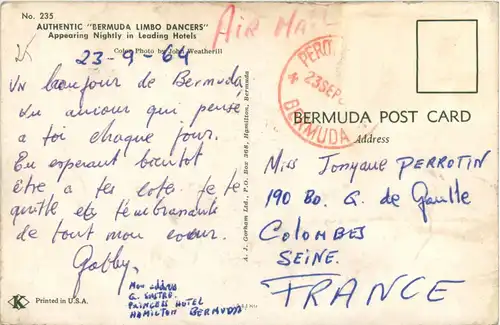 No. 235
AUTHENTIC "BERMUDA LIMBO DANCERS"
Appearing Nightly in Leading Hotels
Color Photo by John Weatherill
AIR MAIL
23-9-64
Un bonjour de Bermuda
du amour qui pense
a toi chaque jour.
En esperant bientot
être a tes cotes je te
quitte et t'embrassant
de tout mon coeur.
Gabby.
Mon address
G.
PRINCESS HOTEL
HAMILTON BERMUDA
Printed in U.S.A.
K
A. J. Gorham Ltd., P.O. Box 368, Hamilton, Bermuda
23 SEP
BERMUDA
BERMUDA POST CARD
Address
Miss Jonyane PERROTIN
190 Bo. G. de Gaulle
COLOMBES
SEINE.
FRANCE